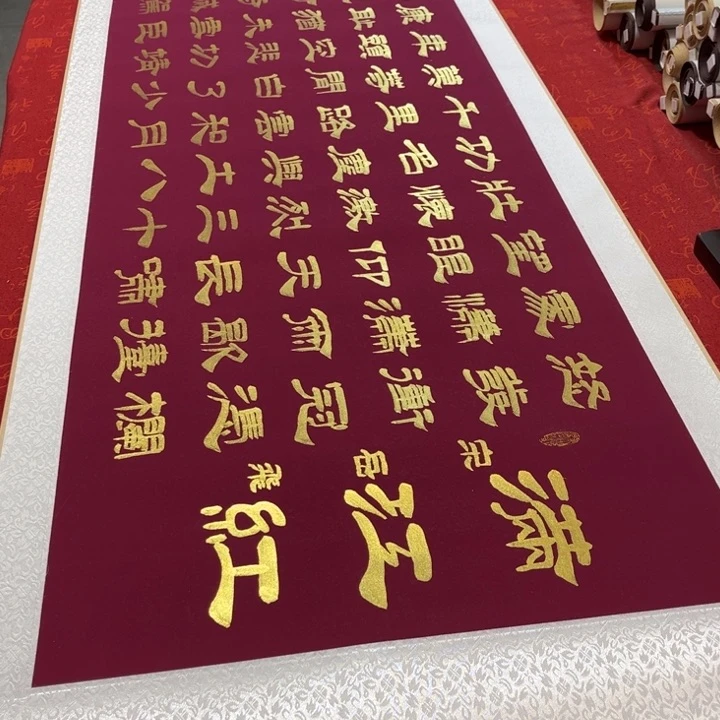 滿江紅
宋岳飛
怒髮衝冠憑欄
處瀟瀟雨歇擡
望眼仰天長嘯
壯懷激烈三十
功名塵與土八
千里路雲和月
莫等閒白了少
年頭空悲切靖
康恥猶未雪臣